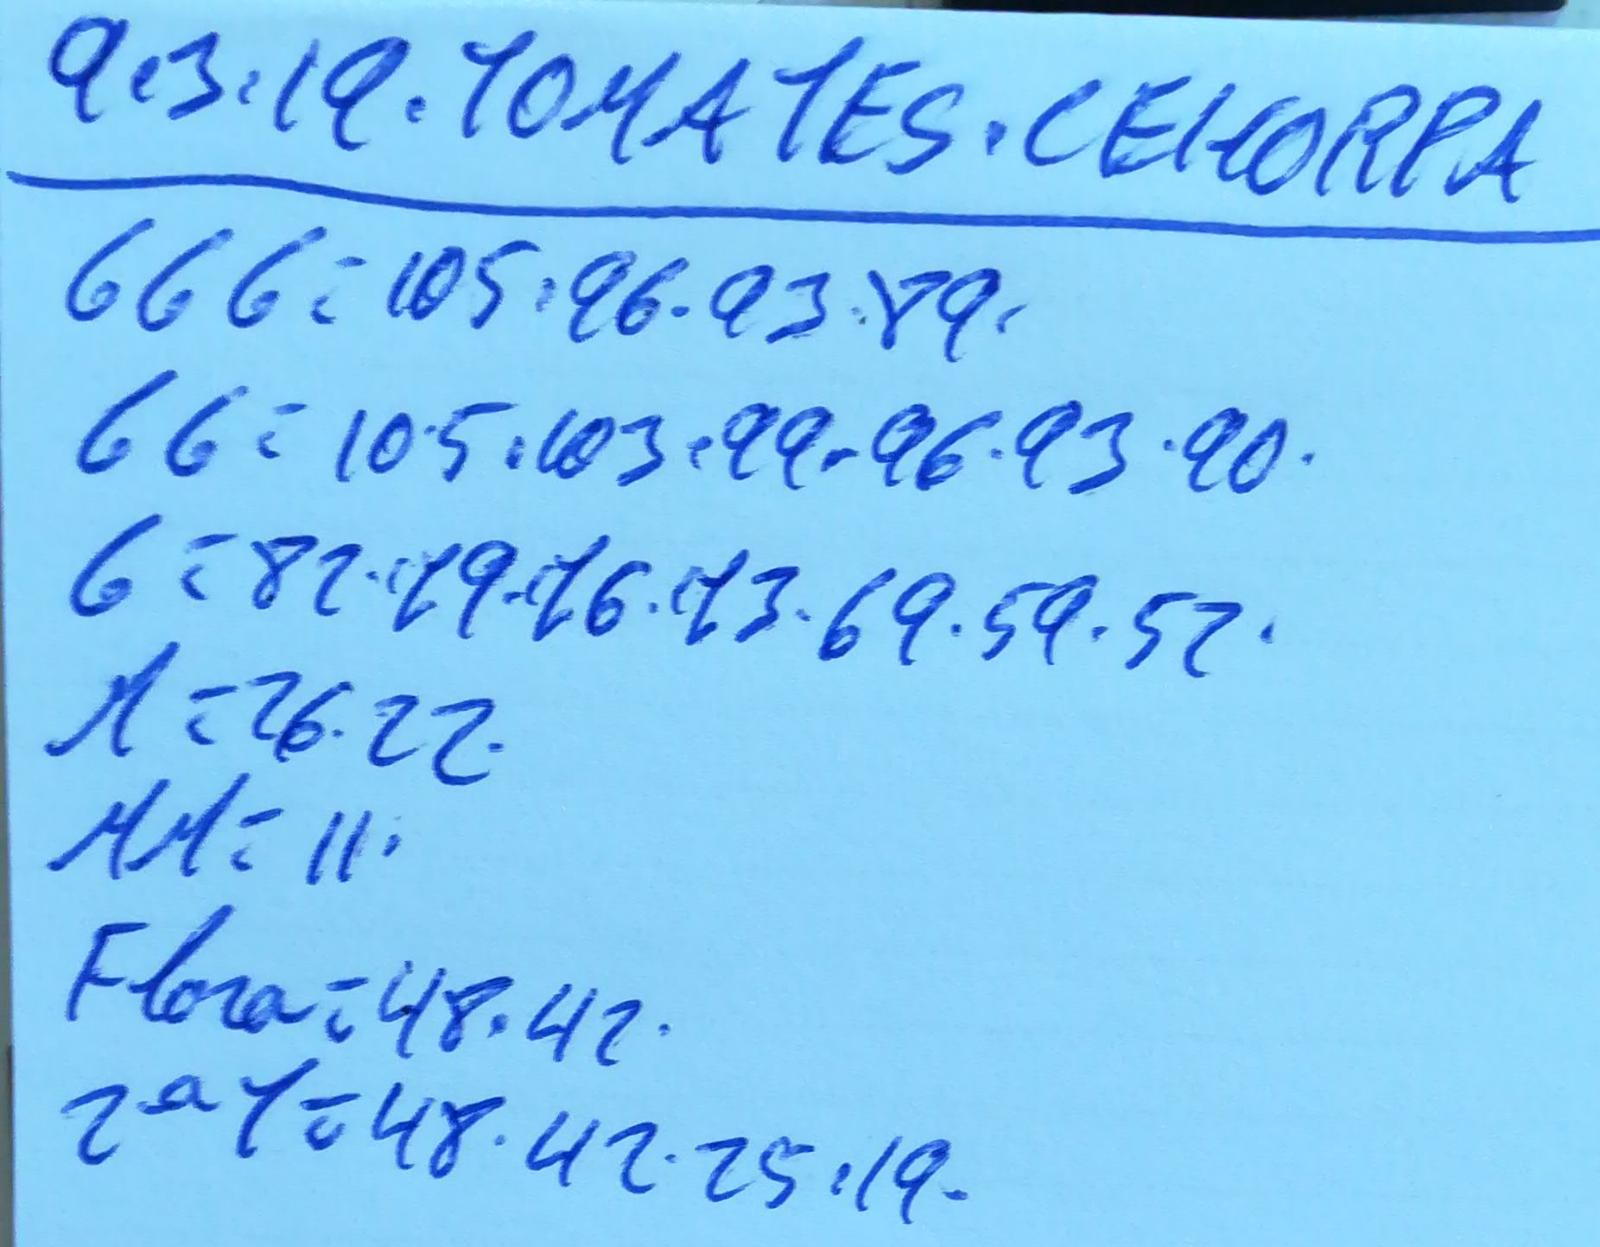 9.3.19.TOMATES.CEHORPA
GGG=105.96.93.89.
GG=105.103.99.96.93.90.
G=82.79.76.73.69.59.52.
M=26.22.
MM=11.
Flora=48.42.
2ªT=48.42.25.19.